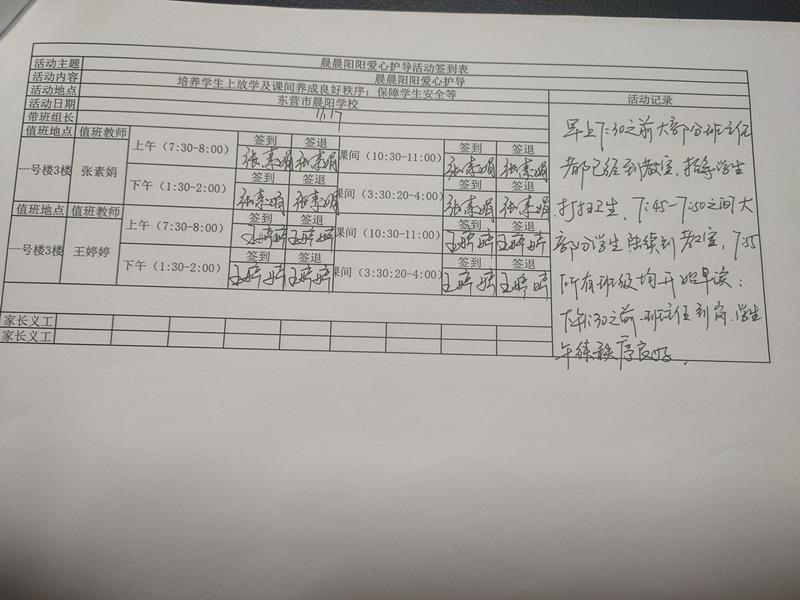 晨晨阳阳爱心护导活动签到表
活动主题 晨晨阳阳爱心护导
活动内容 培养学生上放学及课间养成良好秩序；保障学生安全等
活动地点 东营市晨阳学校 活动记录
活动日期 11.17
带班组长
值班地点 值班教师 上午（7:30-8:00） 签到 签退 课间（10:30-11:00） 签到 签退
张素娟 张素娟 张素娟 张素娟
一号楼3楼 张素娟 下午（1:30-2:00） 签到 签退 课间（3:30:20-4:00） 签到 签退
张素娟 张素娟 张素娟 张素娟
值班地点 值班教师 上午（7:30-8:00） 签到 签退 课间（10:30-11:00） 签到 签退
王婷婷 王婷婷 王婷婷 王婷婷
一号楼3楼 王婷婷 下午（1:30-2:00） 签到 签退 课间（3:30:20-4:00） 签到 签退
王婷婷 王婷婷 王婷婷 王婷婷
家长义工
家长义工
早上7:30之前大部分班主任
都已经到教室，指导学生
打扫卫生，7:45-7:50之间大
部分学生陆续到教室，7:55
所有班级均开始早读；
下午1:30之前，班主任到岗，学生
午练秩序良好。